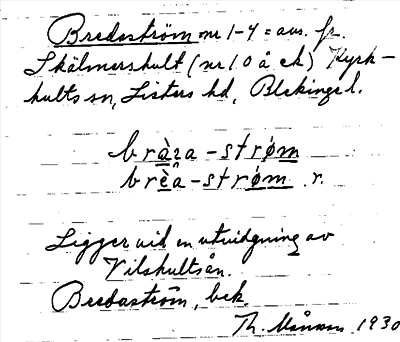 Bredaström nr 1-4 = avs. fr.
Skälmershult (nr 10 å ek) Kyrk-
hults sn, Listers hd, Blekinge l.
bràza-strøm
brèâ-strøm r.
Ligger vid en utvidgning av
Vilshultsån.
Bredaström, bek.
Th. Månsson 1930